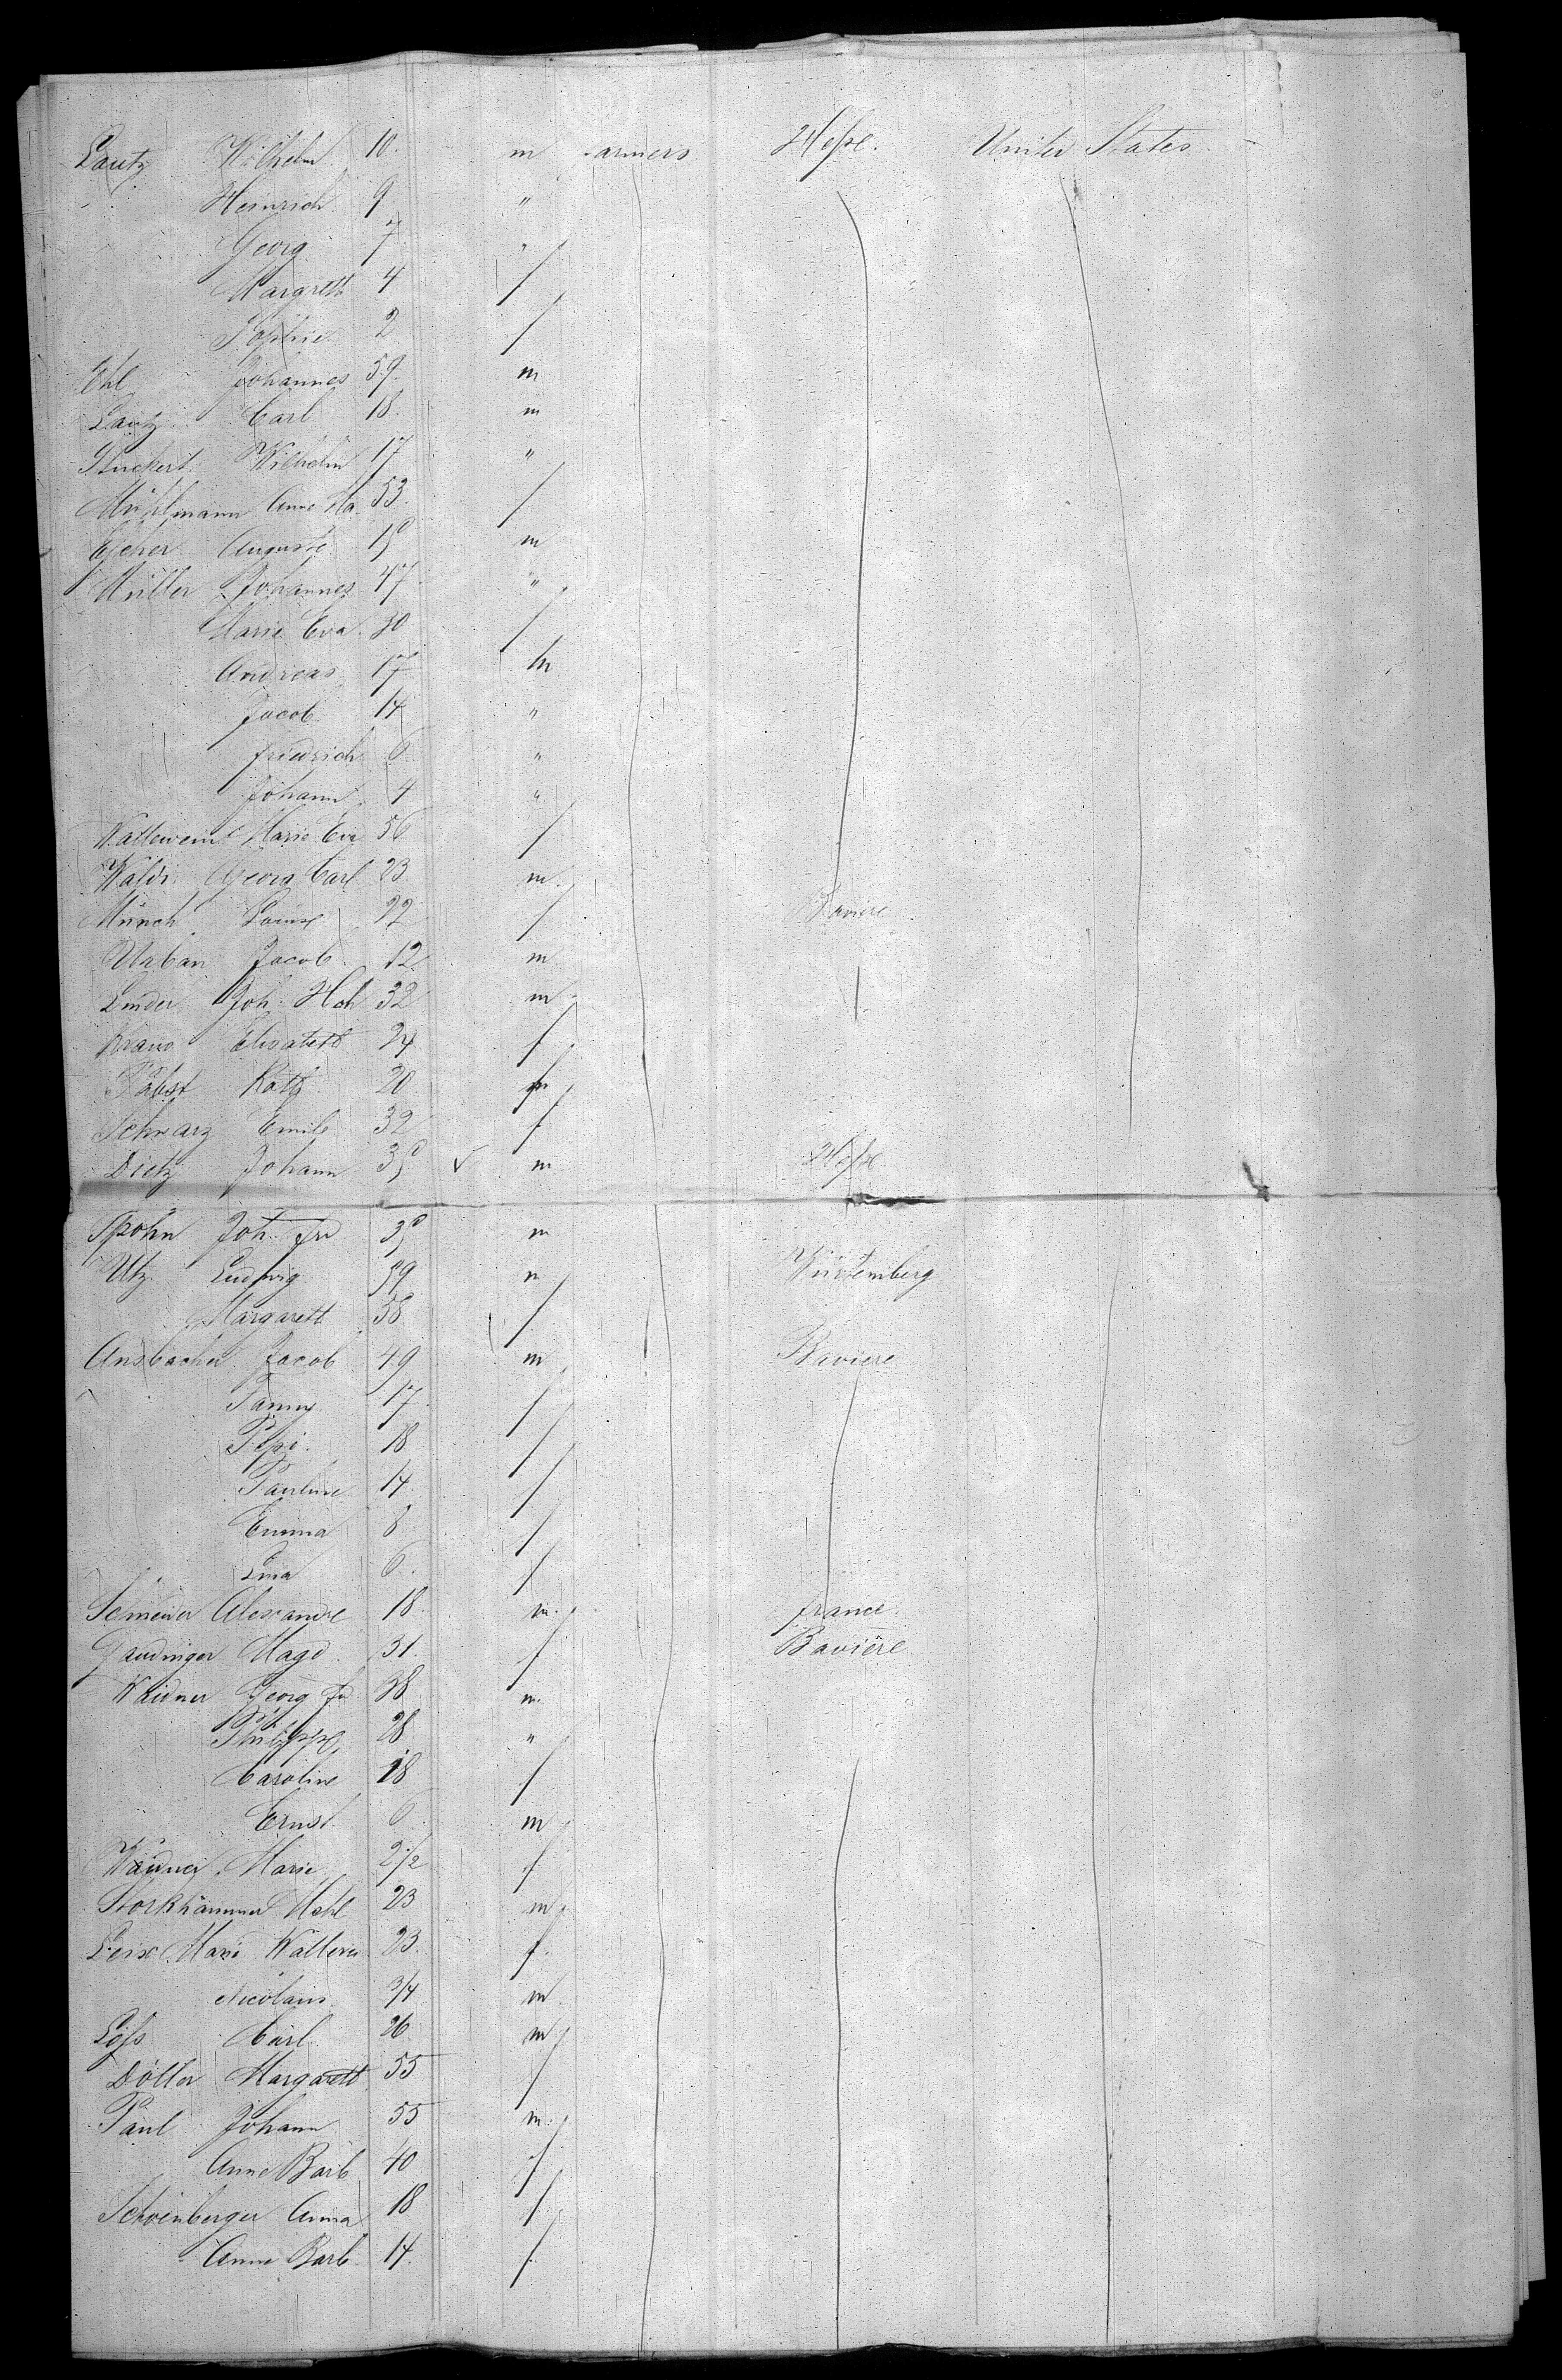 Lautz Wilhelm 10. m farmers Hesse. United States
Heinrich 9 "
Georg 7 "
Margreth 4 f
Sophie 2 f
Ehl Johannes 59. m
Lautz Carl 18. m
Stuckert Wilhelm 17 "
Mühlmann Anne Ma. 53. f
Escher Auguste 19 m
Müller Johannes 47 "
Marie Eva. 30 f
Andreas 17 m
Jacob 14 "
Friedrich 6 "
Johann 4 "
Marie Eva 56 f
Georg Carl 23. m.
Münch Louise 22 f Baviere
Urban Jacob. 12 m
Linder Joh. Hch 32 m
Kraus Elisabeth 24 f
Pabst Kath 20
Schwarz Emile 32 f
Dietz Johann 35 ✓ m Hesse
Spohn Joh. Frd 35 m
Utz. Ludwig 59 m Würtemberg
Margareth 58 f
Ansbacher Jacob 49 m Baviere
Fanny 17. f
Pepi. 18 f
Pauline 14 f
Emma 8 f
Lina 6. f
Schneider Alexandre 18. m. France.
Gaudinger Magd. 31. f Bavière
Waidner Georg Fr 38 m.
Philippe 28 "
Caroline 18 f
Ernst 6 m
Waidner Marie 2 1/2 f
Storkhammer 23 m
Leix Marie 23. f.
Nicolaus 3/4 m
Löss Carl. 26 m
Dötter Margareth 55 f
Paul Johann 55 m.
Anne Barb 40 f
Schoenberger Anna 18 f
Anne Barb. 14. f